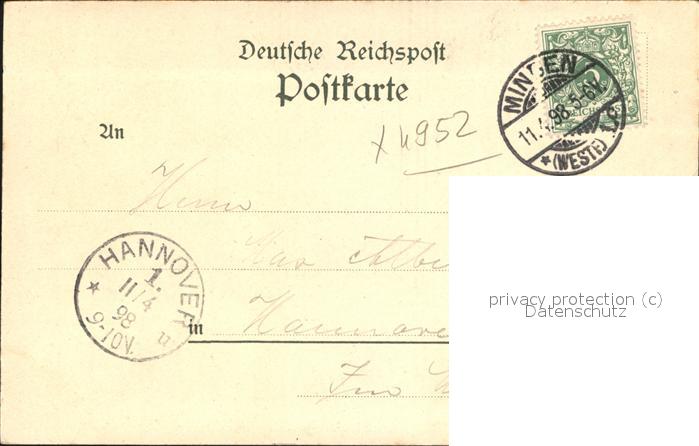 Deutsche Reichspost
Postkarte
An
x 4952
MINDEN
11.4.98.5-6V.
* (WESTF)
Herrn
Max Albe
HANNOVER
1.
11/4
98
9-10V.
in
Hannover
privacy protection (c)
Datenschutz